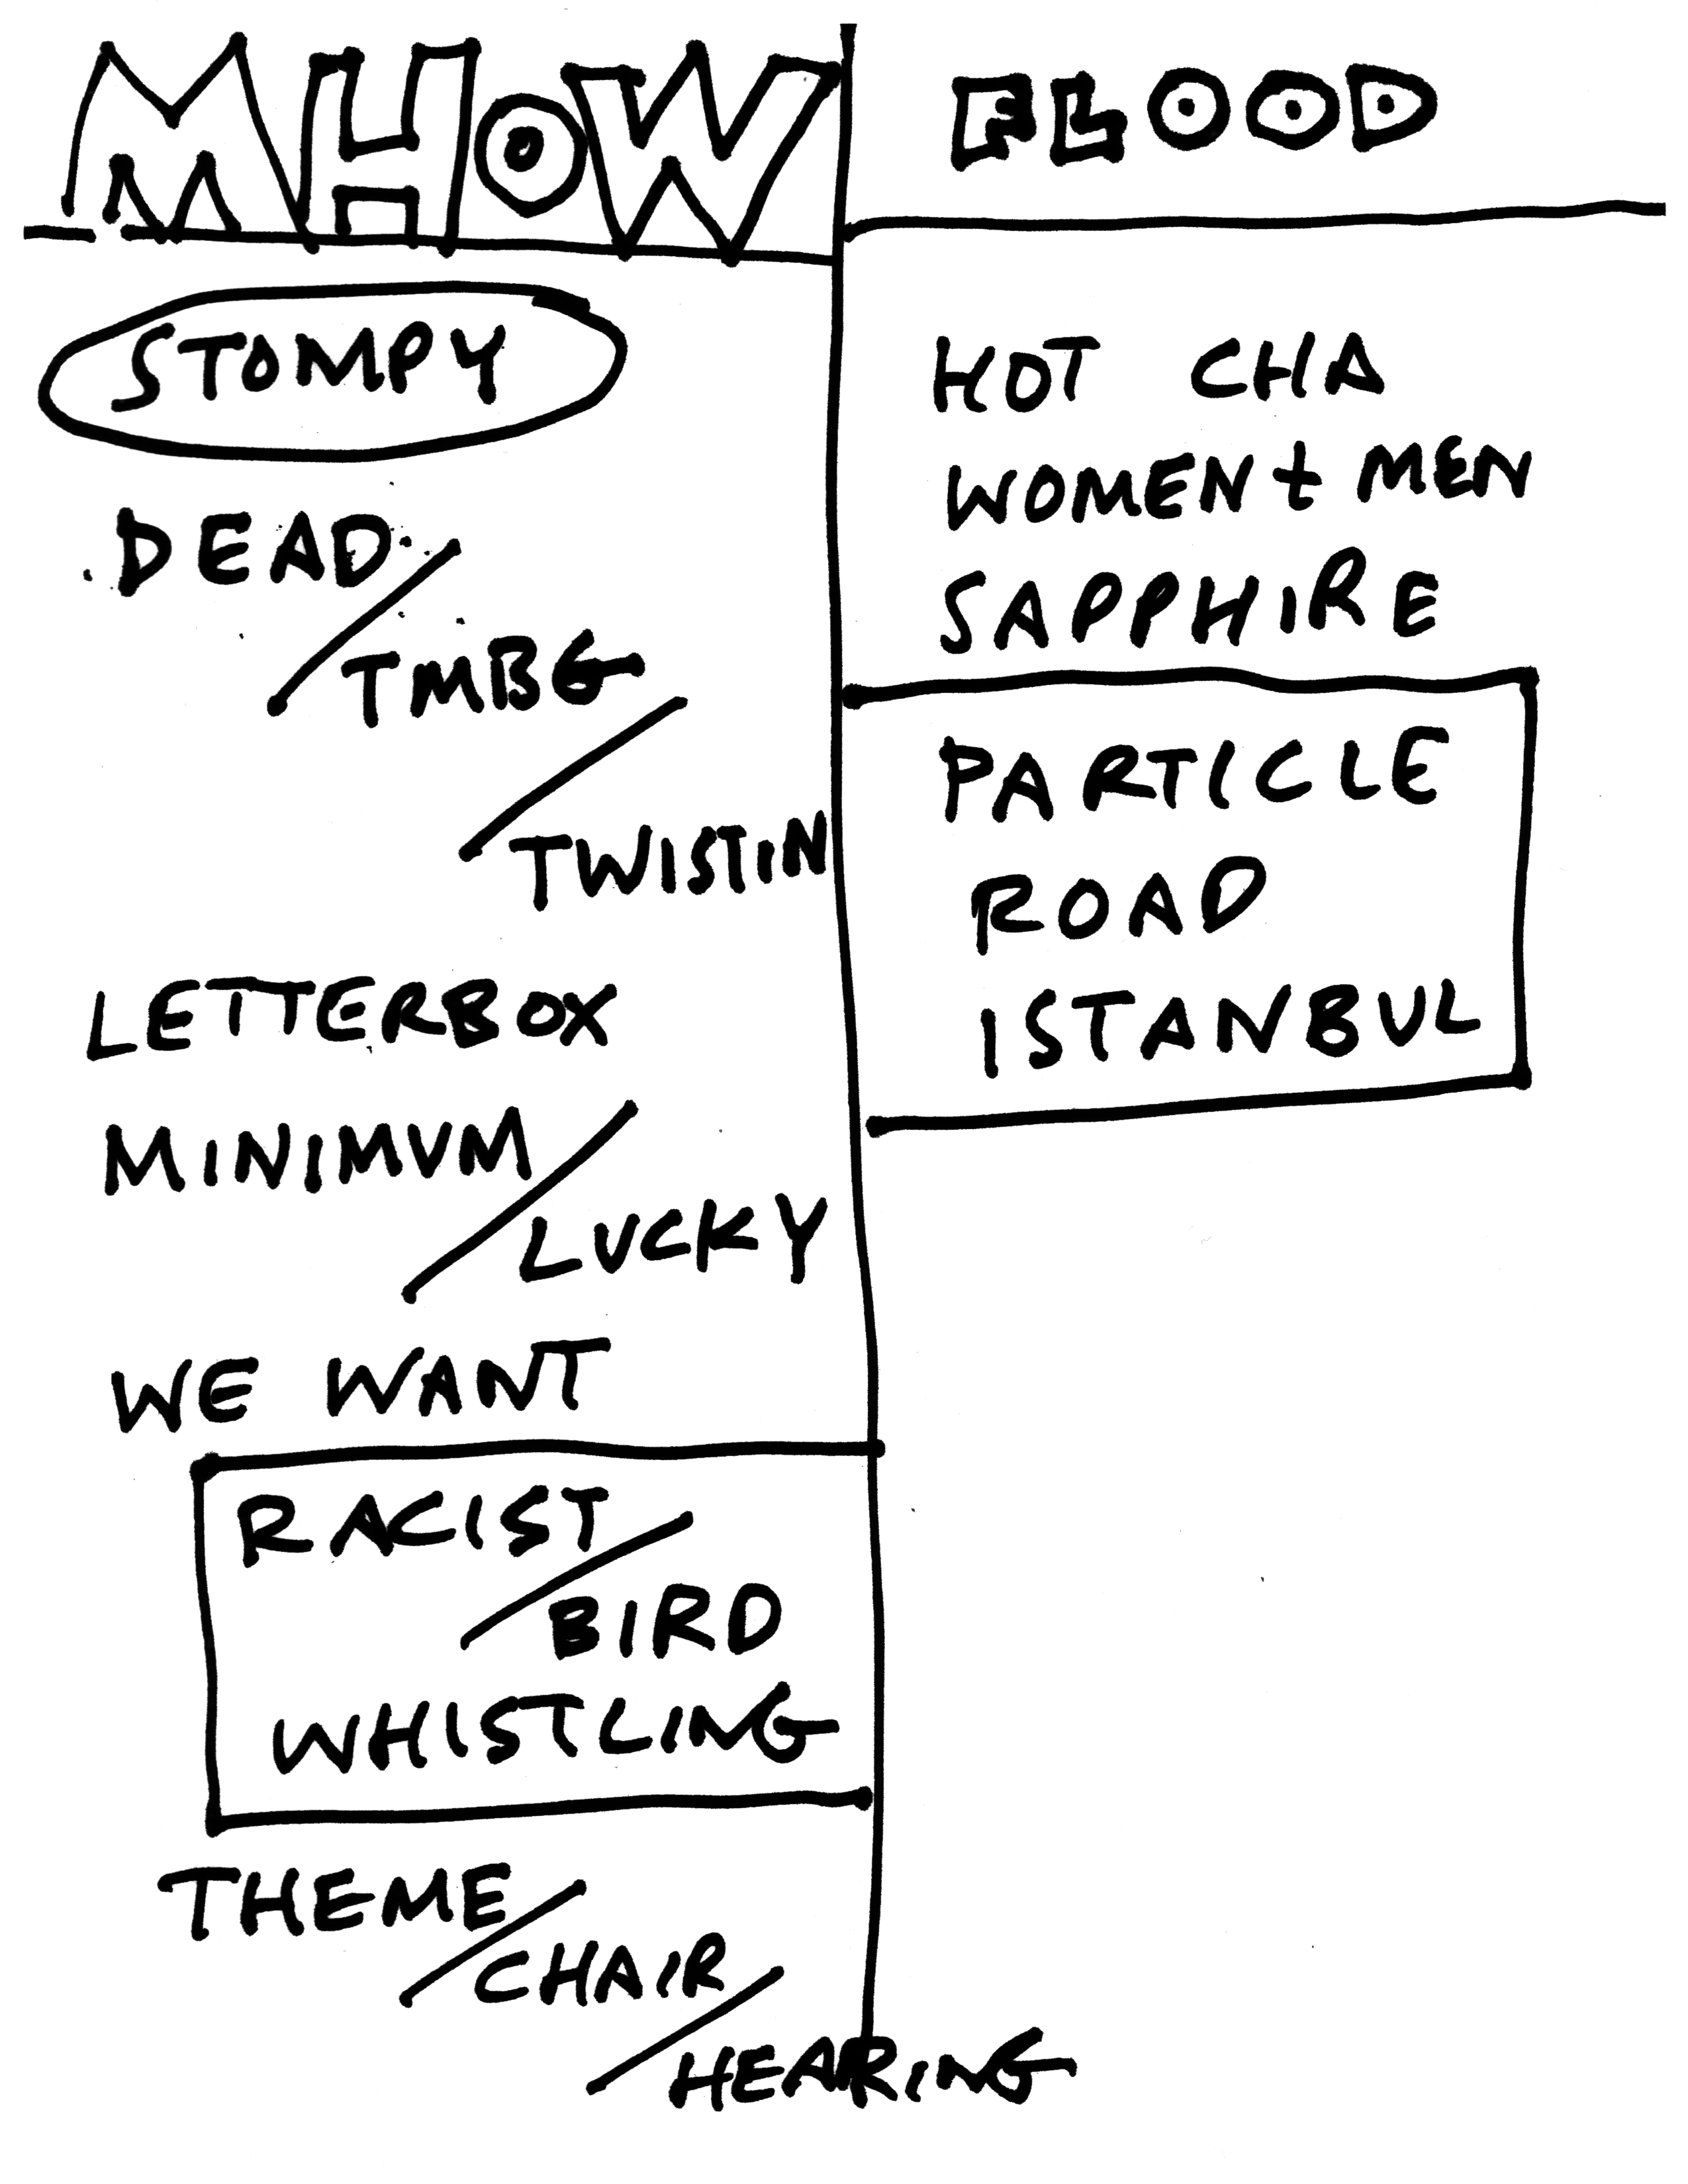 MHOW
STOMPY
DEAD/
TMBG/
TWISTIN
LETTERBOX
MINIMUM/
LUCKY
WE WANT
RACIST/
BIRD
WHISTLING
THEME/
CHAIR/
HEARING
FLOOD
HOT CHA
WOMEN + MEN
SAPPHIRE
PARTICLE
ROAD
ISTANBUL